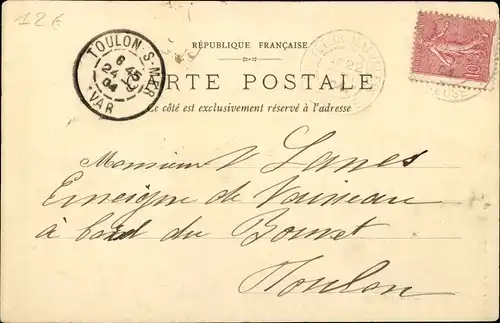 12€
TOULON-S-MER
6 45
24
04
VAR
RÉPUBLIQUE FRANÇAISE
CARTE POSTALE
Ce côté est exclusivement réservé à l'adresse
10
Monsieur V Lanes
Enseigne de Vaisseau
à bord du Bouvet
Toulon